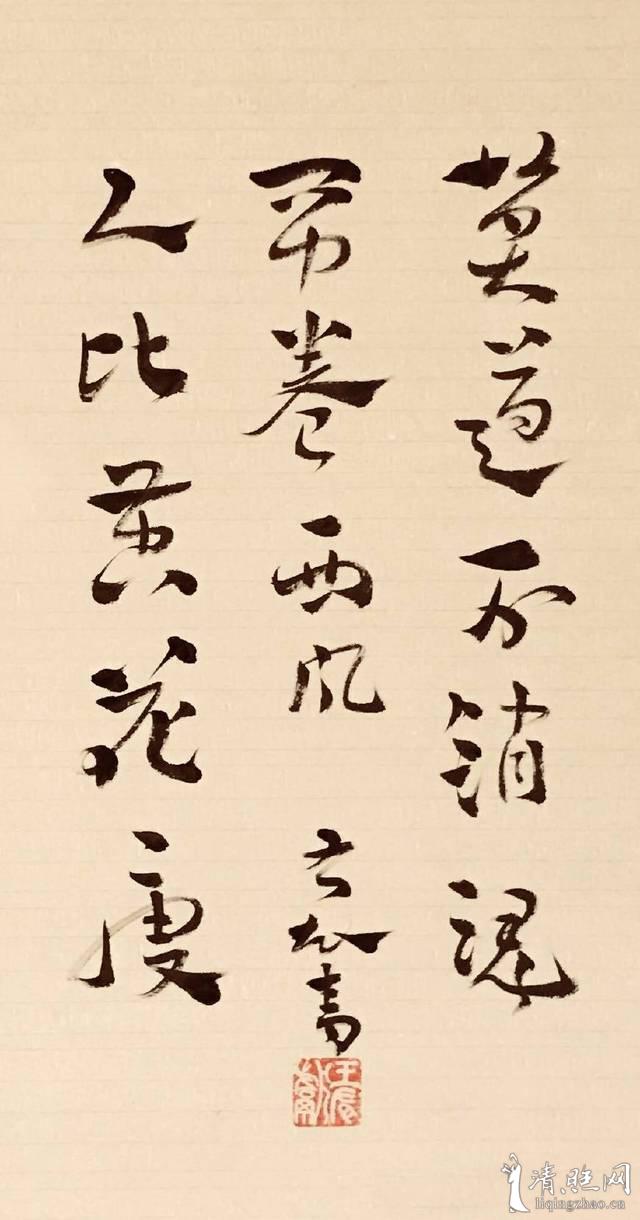 莫道不销魂
帘卷西风
人比黄花瘦
书
清照网
liqingzhao.cn